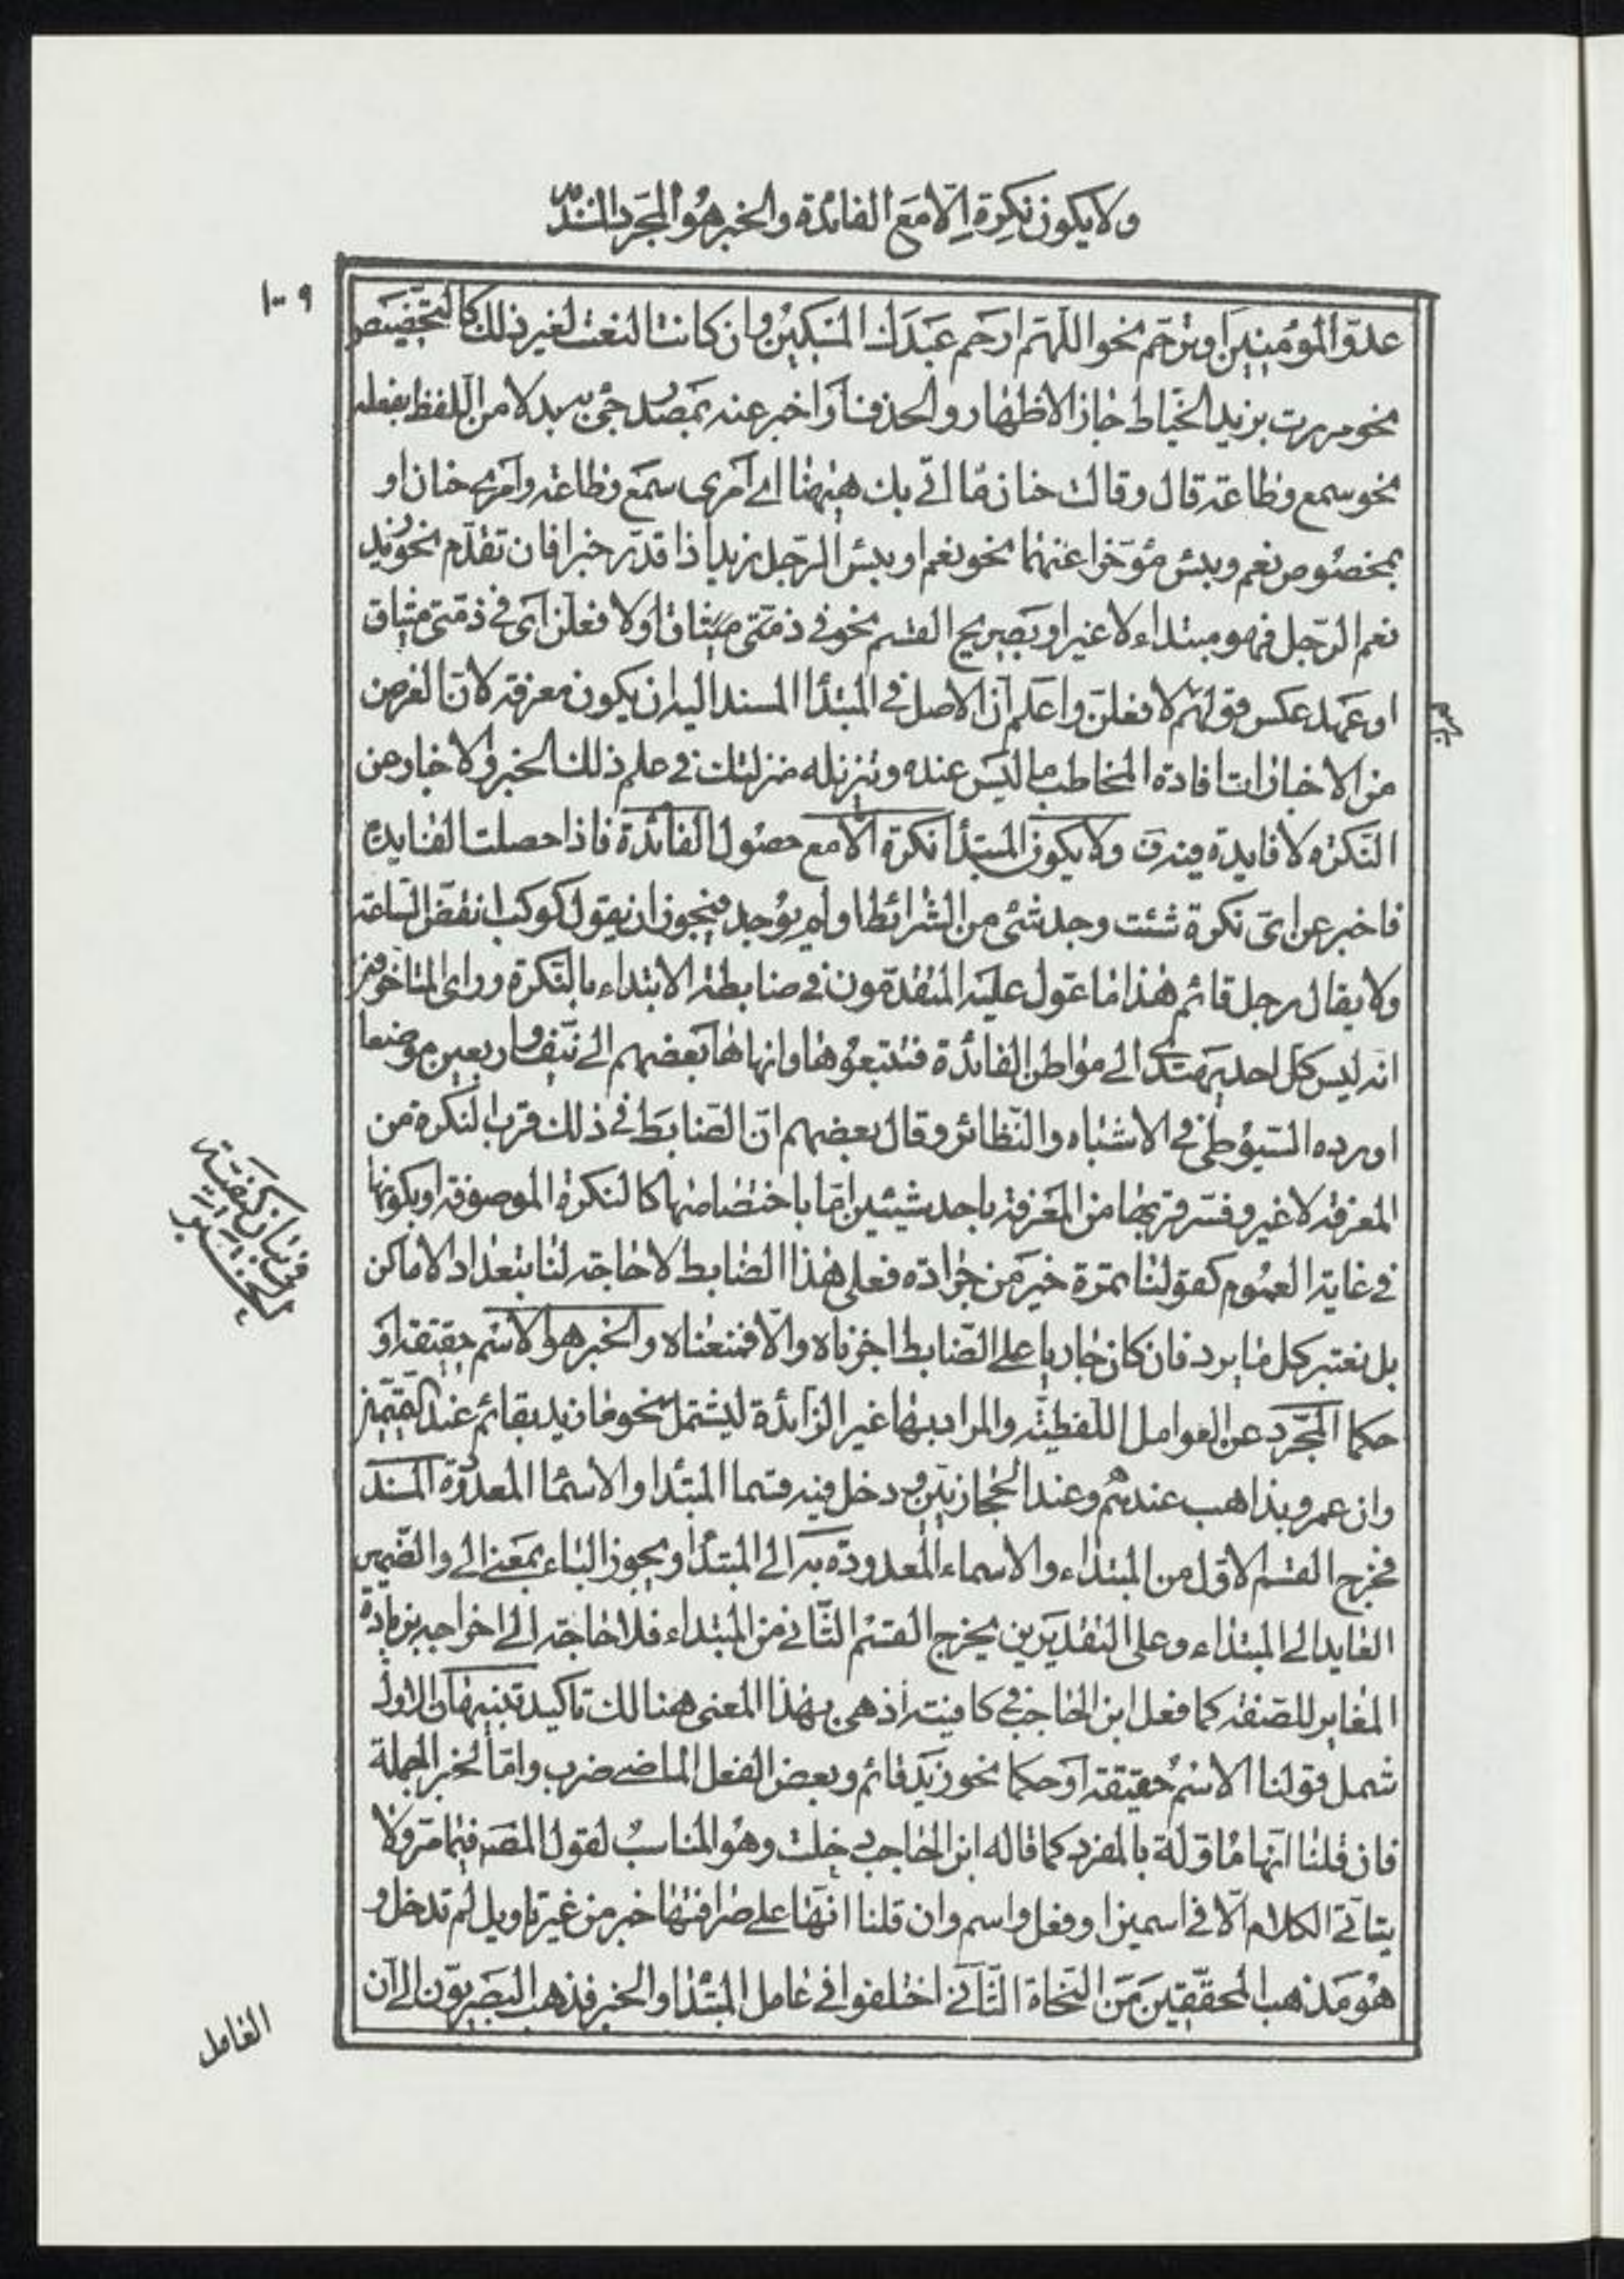 ولا يكون نكرة إلّا مع الفائدة والخبر هو المجرّد المسند به
١٠٩
عدوّ المؤمنين او ترحّم نحو اللّهمّ ارحم عبدك المسكين وان كانت النعت لغير ذلك كالتخصيص
نحو مررت بزيد الخيّاط جاز الاظهار والحذف او اخبر عنه بمصدر جئ به بدلا من اللفظ بفعله
نحو سمع وطاعة قال وقالت حنان ما اتى بك ههنا اى امرى سمع وطاعة وامرى حنان او
بمخصوص نعم وبئس مؤخرا عنهما نحو نعم او بئس الرّجل زيد اذا قدّر خبرا فان تقدّم نحو زيد
نعم الرّجل فهو مبتداء لا غير او بصريح القسم نحو فى ذمّتى ميثاق او لا فعلن اى فى ذمّتى ميثاق
او عهد عكس قولهم لا فعلنّ واعلم انّ الاصل فى المبتدأ المسند اليه ان يكون معرفة لانّ الغرض
من الاخبارات افادة المخاطب ما ليس عنده وتنزيله منزلتك فى علم ذلك الخبر والاخبار عن
النّكرة لا فايدة فيه ولا يكون المبتدأ نكرة الّا مع حصول الفائدة فاذا حصلت الفايدة
فاخبر عن اىّ نكرة شئت وجد شئ من الشرائط او لم يوجد فيجوز ان يقول كوكب انقضّ السّاعة
ولا يقال رجل قائم هذا ما عوّل عليه المتقدّمون فى ضابطة الابتداء بالنّكرة وراى المتاخرون
انه ليس كل احد يهتدى الى مواطن الفائدة فتتبعوها وانهاها بعضهم الى نيّف واربعين موضعا
اورده السّيوطى فى الاشباه والنّظائر وقال بعضهم انّ الضّابط فى ذلك قرب النكرة من
المعرفة لا غير وفسّر قربها من المعرفة باحد شيئين امّا باختصاصها كالنكرة الموصوفة او بكونها
فى غاية العموم كقولنا تمرة خير من جرادة فعلى هذا الضابط لا حاجة لنا بتعداد الاماكن
بل نعتبر كل ما يرد فان كان جاريا على الضّابط اجزناه والّا فمنعناه والخبر هو الاسم حقيقة او
حكما المجرّد عن العوامل اللّفظيّة والمراد بها غير الزّائدة ليشتمل نحو ما زيد بقائم عند التميميّين
وان عمرو بذاهب عندهم وعند الحجازيّين ودخل فيه قسما المبتدا والاسما المعدودة المسند
فخرج القسم الاوّل من المبتداء والاسماء المعدودة به الى المبتدأ ويجوز الباء بمعنى الى والضّمير
العايد الى المبتداء وعلى التقديرين يخرج القسم الثّانى من المبتداء فلا حاجة الى اخراجه بزيادة
المغاير للصّفة كما فعل ابن الحاجب فى كافيته اذ هى بهذا المعنى هنالك تاكيد تنبيهان الاول
شمل قولنا الاسم حقيقة او حكما نحو زيد قائم وبعض الفعل الماضى ضرب وامّا الخبر الجملة
فان قلنا انّها مأوّلة بالمفرد كما قاله ابن الحاجب دخلت وهو المناسب لقول المصـ فيما مرّ ولا
يتاتّى الكلام الّا فى اسمين او وفعل واسم وان قلنا انّها على صرافتها خبر من غير تاويل لم تدخل و
هو مذهب المحقّقين من النّحاة الثّانى اختلفوا فى عامل المبتدا والخبر فذهب البصريّون الى ان
فى بيان كيفيّة
الخبر
العامل